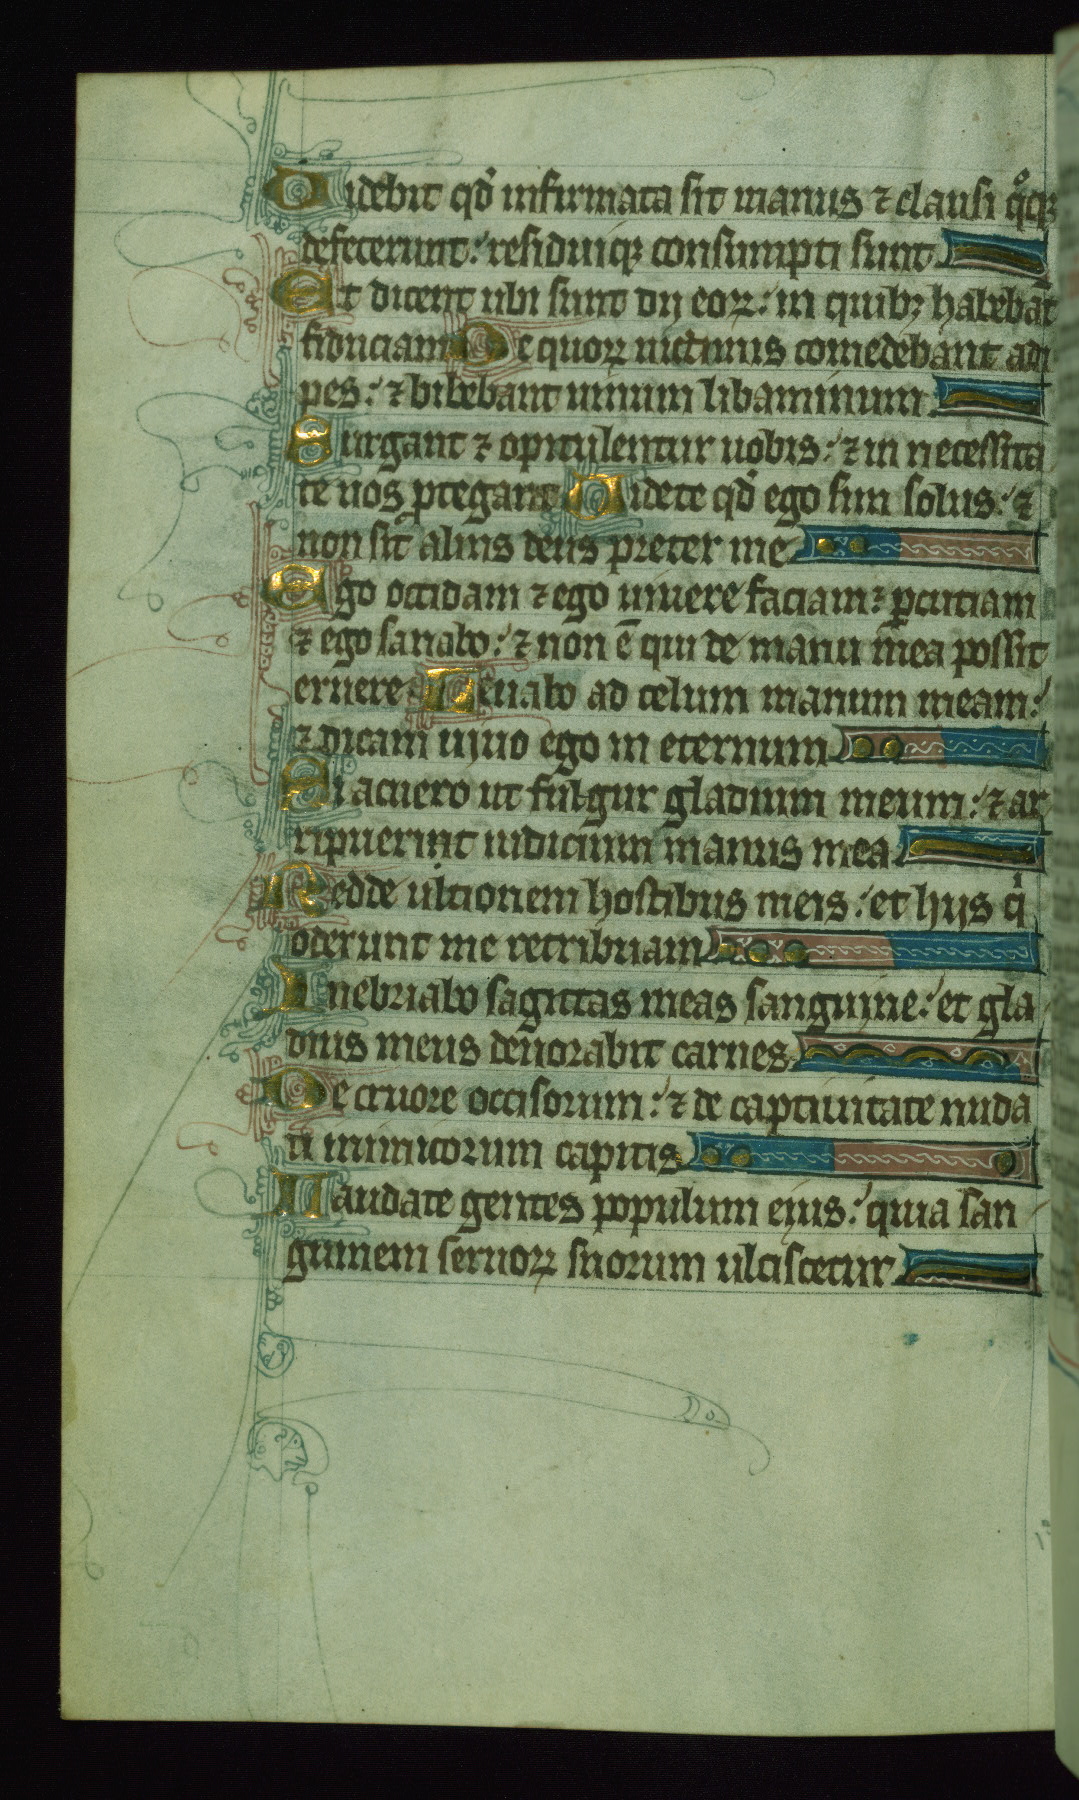 Videbit qd̕ infirmata sit manus ⁊ clausi qͦqꝫ
defecerunt: residuiqꝫ consumpti sunt
Et dicent ubi sunt dij eoꝝ: in quibꝫ habebāt
fiduciam De quoꝝ uictimis comedebant adi
pes: ⁊ bibebant uinum libaminum
Surgant ⁊ opitulentur uobis: ⁊ in necessita
te uos ꝓtegant Uidete qd̕ ego sim solus: ⁊
non sit alius deus preter me
Ego occidam ⁊ ego uiuere faciam: ꝑcutiam
⁊ ego sanabo: ⁊ non ē qui de manu mea possit
eruere Leuabo ad celum manum meam:
⁊ dicam uiuo ego in eternum
Si acuero ut fulgur gladium meum: ⁊ ar
ripuerint iudicium manus mea
Redde ultionem hostibus meis: et hijs qͥ
oderunt me retribuam
Inebriabo sagittas meas sanguine: et gla
dius meus deuorabit carnes
De cruore occisorum: ⁊ de captiuitate nuda
ti inimicorum capitis
Laudate gentes populum eius: quia san
guinem seruoꝝ suorum ulciscetur